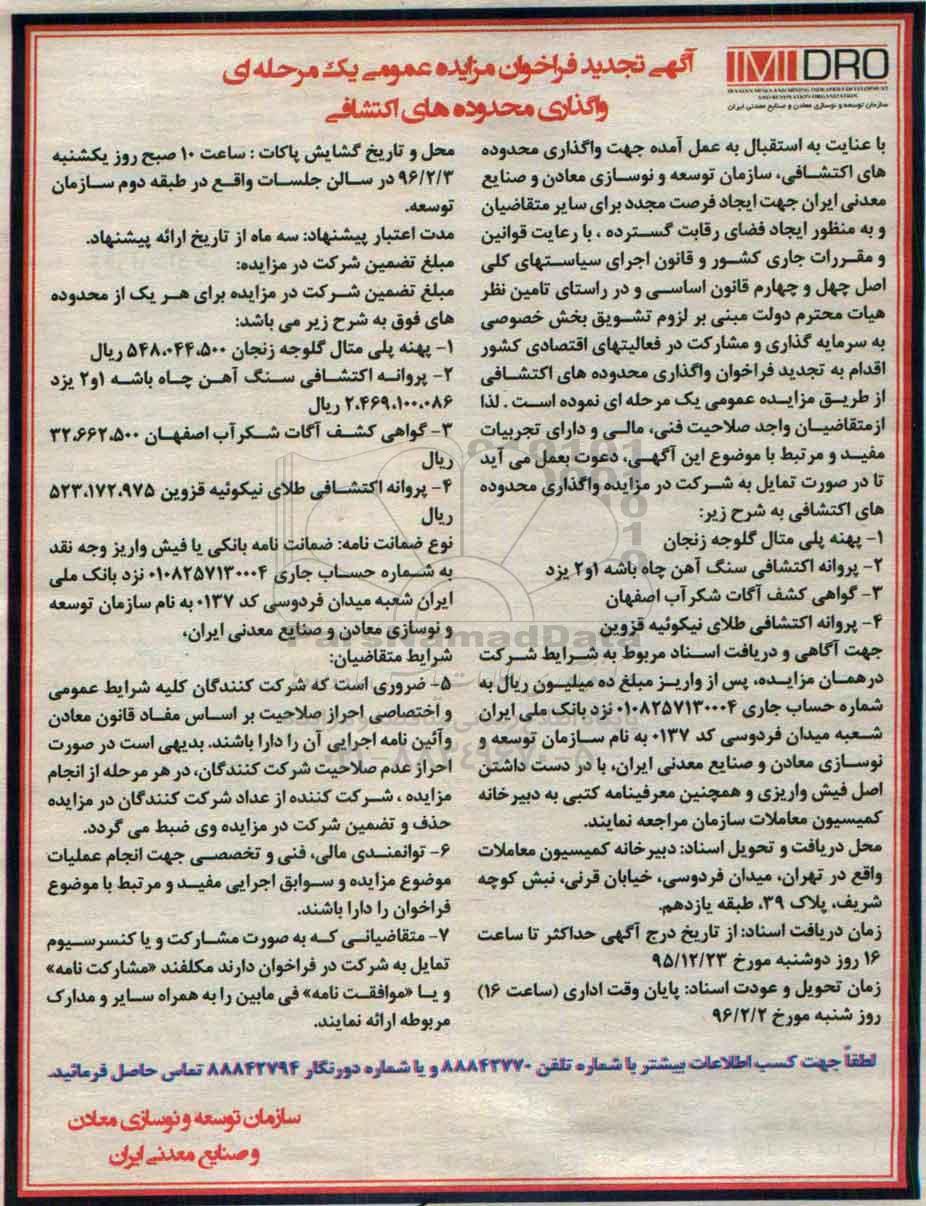 IMIDRO
IRANIAN MINES AND MINING INDUSTRIES DEVELOPMENT
AND RENOVATION ORGANIZATION
سازمان توسعه و نوسازی معادن و صنایع معدنی ایران
آگهی تجدید فراخوان مزایده عمومی یک مرحله ای
واگذاری محدوده های اکتشافی
با عنایت به استقبال به عمل آمده جهت واگذاری محدوده
های اکتشافی، سازمان توسعه و نوسازی معادن و صنایع
معدنی ایران جهت ایجاد فرصت مجدد برای سایر متقاضیان
و به منظور ایجاد فضای رقابت گسترده ، با رعایت قوانین
و مقررات جاری کشور و قانون اجرای سیاستهای کلی
اصل چهل و چهارم قانون اساسی و در راستای تامین نظر
هیات محترم دولت مبنی بر لزوم تشویق بخش خصوصی
به سرمایه گذاری و مشارکت در فعالیتهای اقتصادی کشور
اقدام به تجدید فراخوان واگذاری محدوده های اکتشافی
از طریق مزایده عمومی یک مرحله ای نموده است . لذا
ازمتقاضیان واجد صلاحیت فنی، مالی و دارای تجربیات
مفید و مرتبط با موضوع این آگهی، دعوت بعمل می آید
تا در صورت تمایل به شرکت در مزایده واگذاری محدوده
های اکتشافی به شرح زیر:
۱- پهنه پلی متال گلوجه زنجان
۲- پروانه اکتشافی سنگ آهن چاه باشه ۱و۲ یزد
۳- گواهی کشف آگات شکرآب اصفهان
۴- پروانه اکتشافی طلای نیکوئیه قزوین
جهت آگاهی و دریافت اسناد مربوط به شرایط شرکت
درهمان مزایده، پس از واریز مبلغ ده میلیون ریال به
شماره حساب جاری ۰۱۰۸۲۵۷۱۳۰۰۰۴ نزد بانک ملی ایران
شعبه میدان فردوسی کد ۰۱۳۷ به نام سازمان توسعه و
نوسازی معادن و صنایع معدنی ایران، با در دست داشتن
اصل فیش واریزی و همچنین معرفینامه کتبی به دبیرخانه
کمیسیون معاملات سازمان مراجعه نمایند.
محل دریافت و تحویل اسناد: دبیرخانه کمیسیون معاملات
واقع در تهران، میدان فردوسی، خیابان قرنی، نبش کوچه
شریف، پلاک ۳۹، طبقه یازدهم.
زمان دریافت اسناد: از تاریخ درج آگهی حداکثر تا ساعت
۱۶ روز دوشنبه مورخ ۹۵/۱۲/۲۳
زمان تحویل و عودت اسناد: پایان وقت اداری (ساعت ۱۶)
روز شنبه مورخ ۹۶/۲/۲
محل و تاریخ گشایش پاکات : ساعت ۱۰ صبح روز یکشنبه
۹۶/۲/۳ در سالن جلسات واقع در طبقه دوم سازمان
توسعه.
مدت اعتبار پیشنهاد: سه ماه از تاریخ ارائه پیشنهاد.
مبلغ تضمین شرکت در مزایده:
مبلغ تضمین شرکت در مزایده برای هر یک از محدوده
های فوق به شرح زیر می باشد:
۱- پهنه پلی متال گلوجه زنجان ۵۴۸،۰۴۴،۵۰۰ ریال
۲- پروانه اکتشافی سنگ آهن چاه باشه ۱و۲ یزد
۲،۴۶۹،۱۰۰،۰۸۶ ریال
۳- گواهی کشف آگات شکرآب اصفهان ۳۲،۶۶۲،۵۰۰
ریال
۴- پروانه اکتشافی طلای نیکوئیه قزوین ۵۲۳،۱۷۲،۹۷۵
ریال
نوع ضمانت نامه: ضمانت نامه بانکی یا فیش واریز وجه نقد
به شماره حساب جاری ۰۱۰۸۲۵۷۱۳۰۰۰۴ نزد بانک ملی
ایران شعبه میدان فردوسی کد ۰۱۳۷ به نام سازمان توسعه
و نوسازی معادن و صنایع معدنی ایران،
شرایط متقاضیان:
۵- ضروری است که شرکت کنندگان کلیه شرایط عمومی
و اختصاصی احراز صلاحیت بر اساس مفاد قانون معادن
وآئین نامه اجرایی آن را دارا باشند. بدیهی است در صورت
احراز عدم صلاحیت شرکت کنندگان، در هر مرحله از انجام
مزایده ، شرکت کننده از عداد شرکت کنندگان در مزایده
حذف و تضمین شرکت در مزایده وی ضبط می گردد.
۶- توانمندی مالی، فنی و تخصصی جهت انجام عملیات
موضوع مزایده و سوابق اجرایی مفید و مرتبط با موضوع
فراخوان را دارا باشند.
۷- متقاضیانی که به صورت مشارکت و یا کنسرسیوم
تمایل به شرکت در فراخوان دارند مکلفند «مشارکت نامه»
و یا «موافقت نامه» فی مابین را به همراه سایر و مدارک
مربوطه ارائه نمایند.
لطفاً جهت کسب اطلاعات بیشتر با شماره تلفن ۸۸۸۴۲۷۷۰ و یا شماره دورنگار ۸۸۸۴۲۷۹۴ تماس حاصل فرمائید.
سازمان توسعه و نوسازی معادن
و صنایع معدنی ایران
ParsNamadData